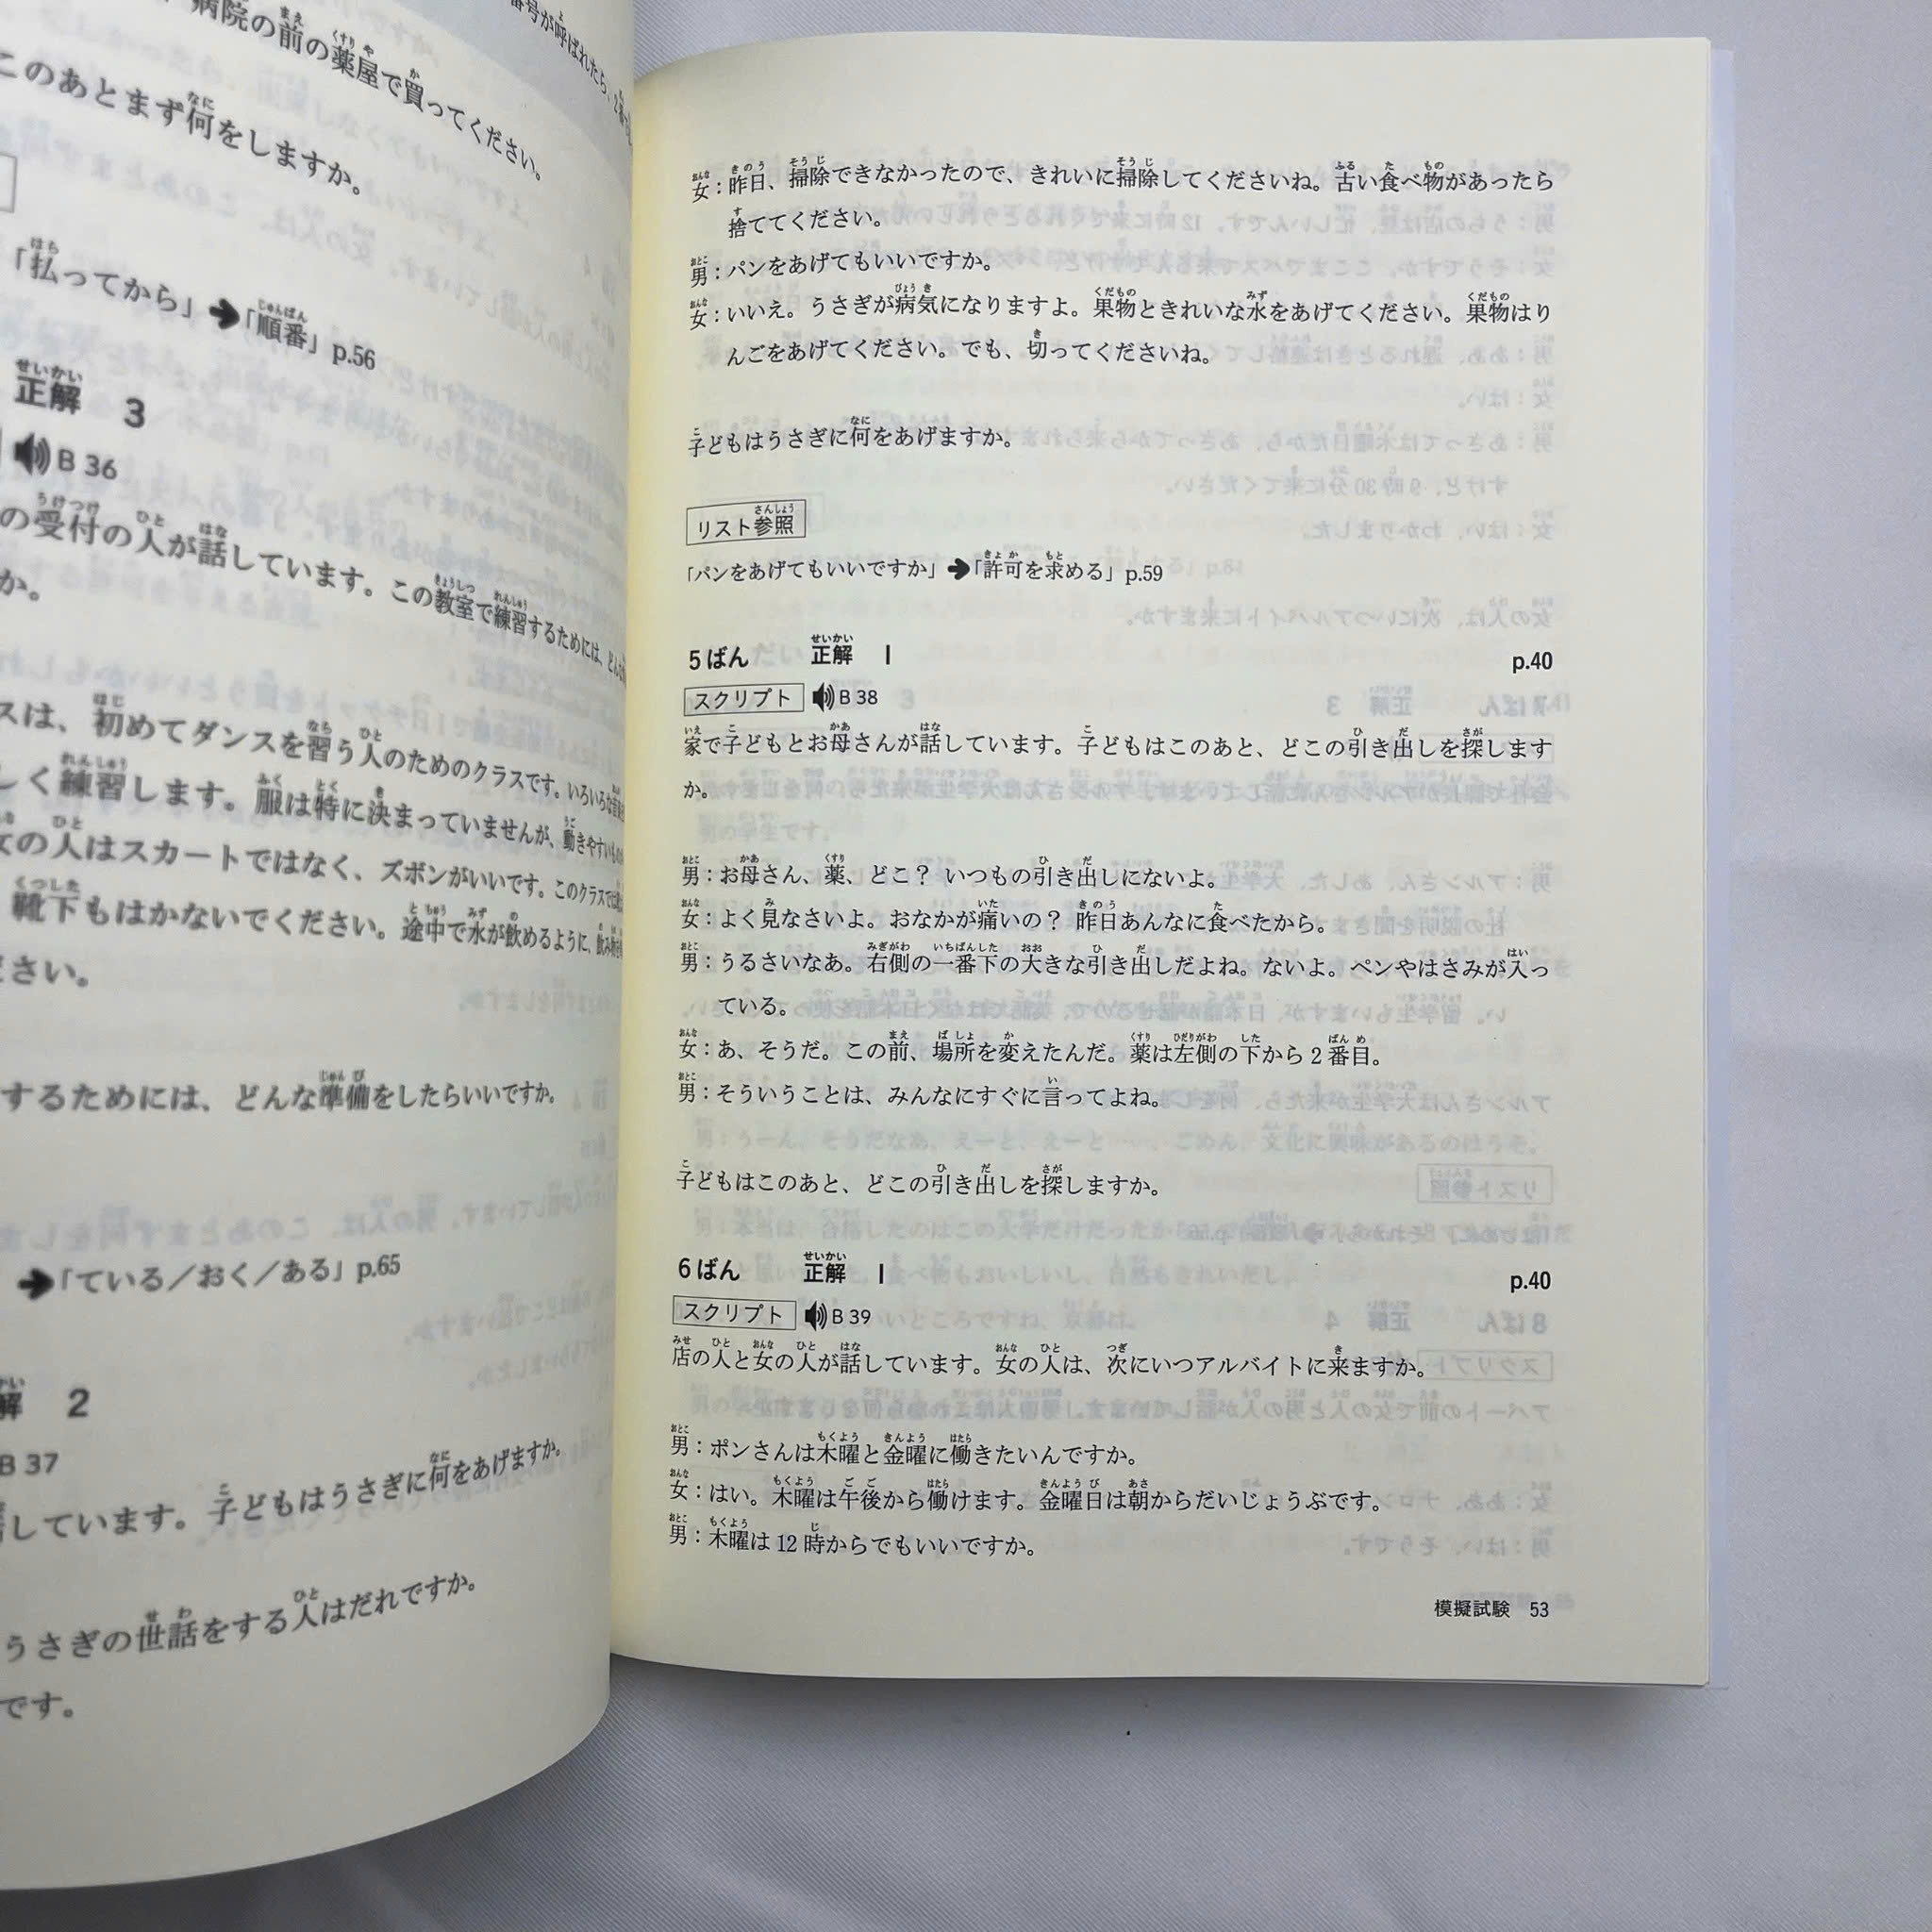 病院の前の薬屋で買ってください。
このあとまず何をしますか。
「払ってから」➔「順番」p.56
正解 3
B 36
の受付の人が話しています。この教室で練習するためには、
か。
スは、初めてダンスを習う人のためのクラスです。いろいろな
しく練習します。服は特に決まっていませんが、動きやすいもの
女の人はスカートではなく、ズボンがいいです。このクラスでは
靴下もはかないでください。途中で水が飲めるように、飲み物を
ださい。
するためには、どんな準備をしたらいいですか。
➔「ている／おく／ある」p.65
解 2
B 37
話しています。子どもはうさぎに何をあげますか。
うさぎの世話をする人はだれですか。
です。
女：昨日、掃除できなかったので、きれいに掃除してくださいね。古い食べ物があったら
捨ててください。
男：パンをあげてもいいですか。
女：いいえ。うさぎが病気になりますよ。果物ときれいな水をあげてください。果物はり
んごをあげてください。でも、切ってくださいね。
子どもはうさぎに何をあげますか。
リスト参照
「パンをあげてもいいですか」➔「許可を求める」p.59
5ばん 正解 1 p.40
スクリプト B 38
家で子どもとお母さんが話しています。子どもはこのあと、どこの引き出しを探します
か。
男：お母さん、薬、どこ？ いつもの引き出しにないよ。
女：よく見なさいよ。おなかが痛いの？ 昨日あんなに食べたから。
男：うるさいなあ。右側の一番下の大きな引き出しだよね。ないよ。ペンやはさみが入っ
ている。
女：あ、そうだ。この前、場所を変えたんだ。薬は左側の下から2番目。
男：そういうことは、みんなにすぐに言ってよね。
子どもはこのあと、どこの引き出しを探しますか。
6ばん 正解 1 p.40
スクリプト B 39
店の人と女の人が話しています。女の人は、次にいつアルバイトに来ますか。
男：ポンさんは木曜と金曜に働きたいんですか。
女：はい。木曜は午後から働けます。金曜日は朝からだいじょうぶです。
男：木曜は12時からでもいいですか。
模擬試験 53